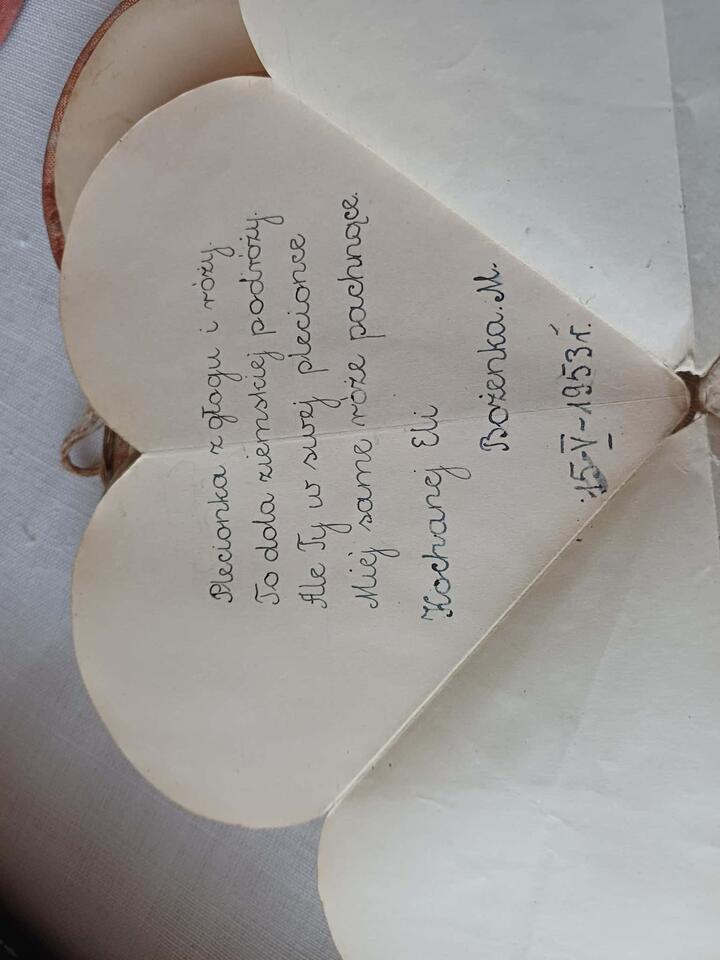 Plecionka z głogu i róży.
To dola ziemskiej podróży.
Ale Ty w swej plecionce
Miej same róże pachnące.
Kochanej Eli
Bożenka. M.
15-V-1953r.